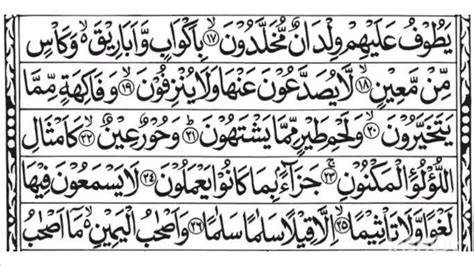 يَطُوْفُ عَلَيْهِمْ وِلْدَانٌ مُّخَلَّدُوْنَ ۙ﴿۱۷﴾ بِاَكْوَابٍ وَّاَبَارِيْقَ ۙ وَكَاْسٍ
مِّنْ مَّعِيْنٍ ۙ﴿۱۸﴾ لَّا يُصَدَّعُوْنَ عَنْهَا وَلَا يُنْزِفُوْنَ ۙ﴿۱۹﴾ وَفَاكِهَةٍ مِّمَّا
يَتَخَيَّرُوْنَ ۙ﴿۲۰﴾ وَلَحْمِ طَيْرٍ مِّمَّا يَشْتَهُوْنَ ؕ﴿۲۱﴾ وَحُوْرٌ عِيْنٌ ۙ﴿۲۲﴾ كَاَمْثَالِ
اللُّؤْلُؤِ الْمَكْنُوْنِ ۚ﴿۲۳﴾ جَزَآءًۢ بِمَا كَانُوْا يَعْمَلُوْنَ ﴿۲۴﴾ لَا يَسْمَعُوْنَ فِيْهَا
لَغْوًا وَّلَا تَاْثِيْمًا ۙ﴿۲۵﴾ اِلَّا قِيْلًا سَلٰمًا سَلٰمًا ﴿۲۶﴾ وَاَصْحٰبُ الْيَمِيْنِ ۙ مَاۤ اَصْحٰبُ